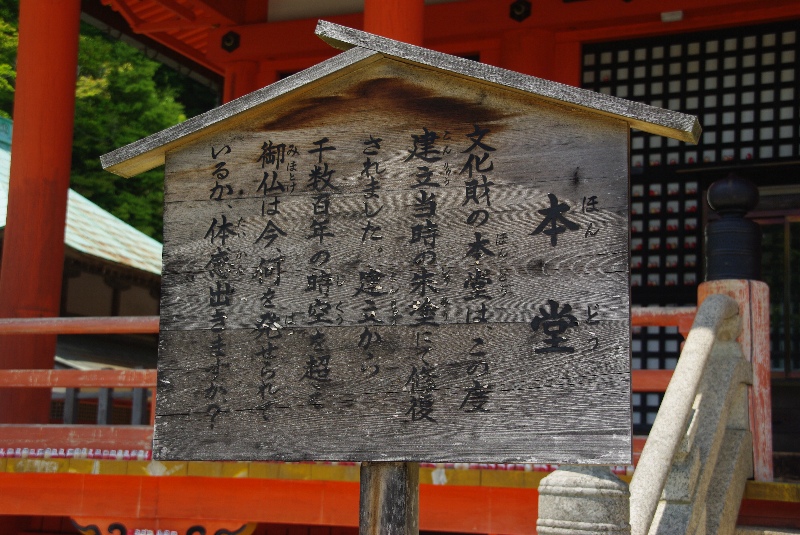 本堂
ほんどう
文化財の本堂はこの度
建立当時の朱塗にて修復
されました。建立から
千数百年の時空を超え
御仏は今、何を発せられて
みほとけ
いるか、体感出きますか?